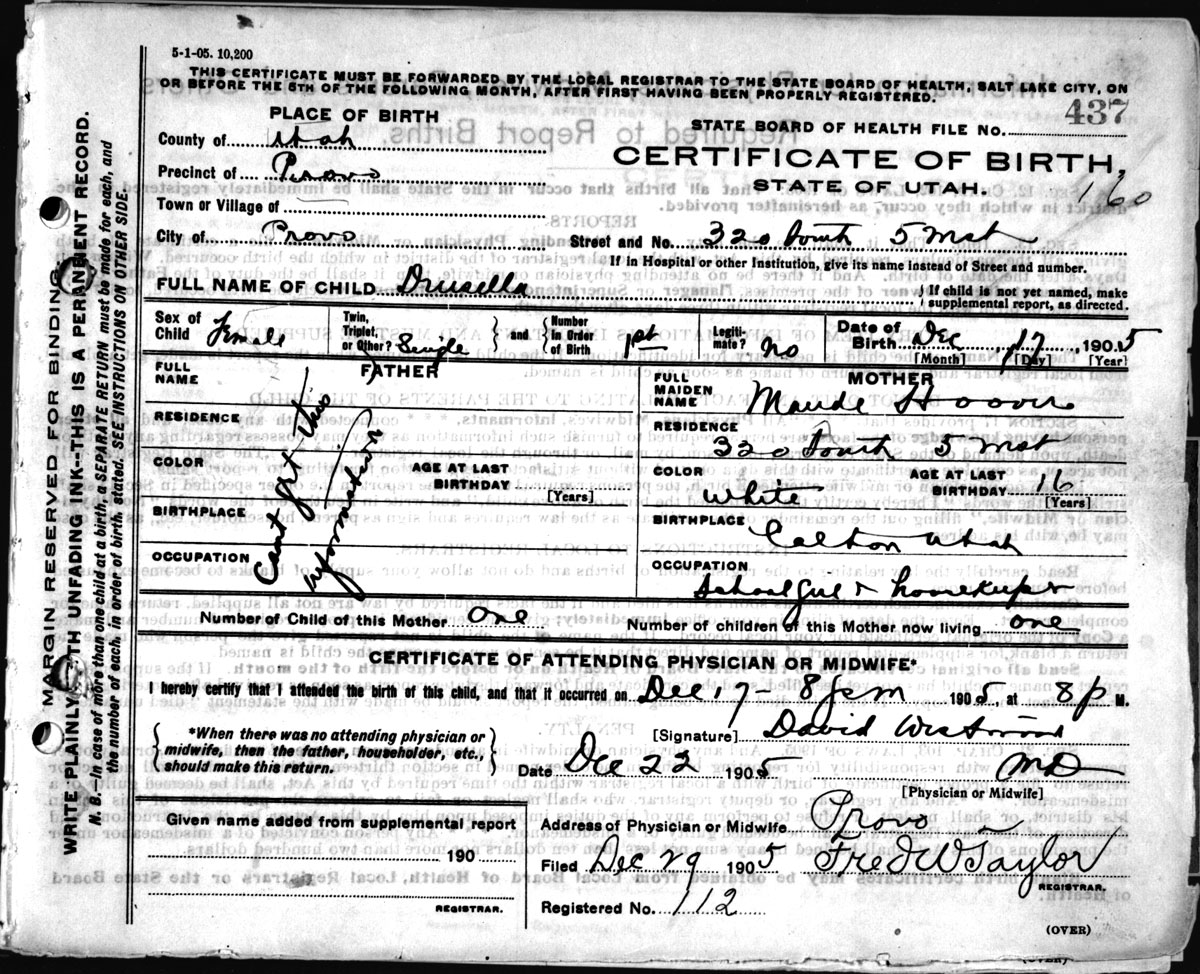 5-1-05. 10,200
THIS CERTIFICATE MUST BE FORWARDED BY THE LOCAL REGISTRAR TO THE STATE BOARD OF HEALTH, SALT LAKE CITY, ON
OR BEFORE THE 5TH OF THE FOLLOWING MONTH, AFTER FIRST HAVING BEEN PROPERLY REGISTERED.
PLACE OF BIRTH
STATE BOARD OF HEALTH FILE No. 437
County of Utah
CERTIFICATE OF BIRTH,
Precinct of Provo
STATE OF UTAH.
160
Town or Village of
City of Provo
Street and No. 320 South 5 West
If in Hospital or other Institution, give its name instead of Street and number.
FULL NAME OF CHILD Drusella
If child is not yet named, make supplemental report, as directed.
Sex of Child Female
Twin, Triplet, or Other? Single
and Number in Order of Birth 1st
Legiti-mate? No
Date of Birth Dec 17 1905
[Month] [Day] [Year]
FATHER
FULL NAME
RESIDENCE
COLOR
AGE AT LAST BIRTHDAY
[Years]
BIRTHPLACE
OCCUPATION
Cant get this
information
MOTHER
FULL MAIDEN NAME Maude Hoover
RESIDENCE
320 South 5 West
COLOR white
AGE AT LAST BIRTHDAY 16
[Years]
BIRTHPLACE
Utah
OCCUPATION
School Girl & housekeeper
Number of Child of this Mother one
Number of children of this Mother now living one
CERTIFICATE OF ATTENDING PHYSICIAN OR MIDWIFE*
I hereby certify that I attended the birth of this child, and that it occurred on Dec 17 - 8 pm 1905 at 8 p M.
*When there was no attending physician or
midwife, then the father, householder, etc.,
should make this return.
[Signature] David Westwood
MD
Date Dec 22 1905
[Physician or Midwife]
Given name added from supplemental report
190
REGISTRAR.
Address of Physician or Midwife Provo
Filed Dec 29 1905 Fred W Taylor
REGISTRAR.
Registered No. 112
(OVER)
MARGIN RESERVED FOR BINDING
WRITE PLAINLY WITH UNFADING INK--THIS IS A PERMANENT RECORD.
N. B.--In case of more than one child at a birth, a SEPARATE RETURN must be made for each, and
the number of each, in order of birth, stated. SEE INSTRUCTIONS ON OTHER SIDE.